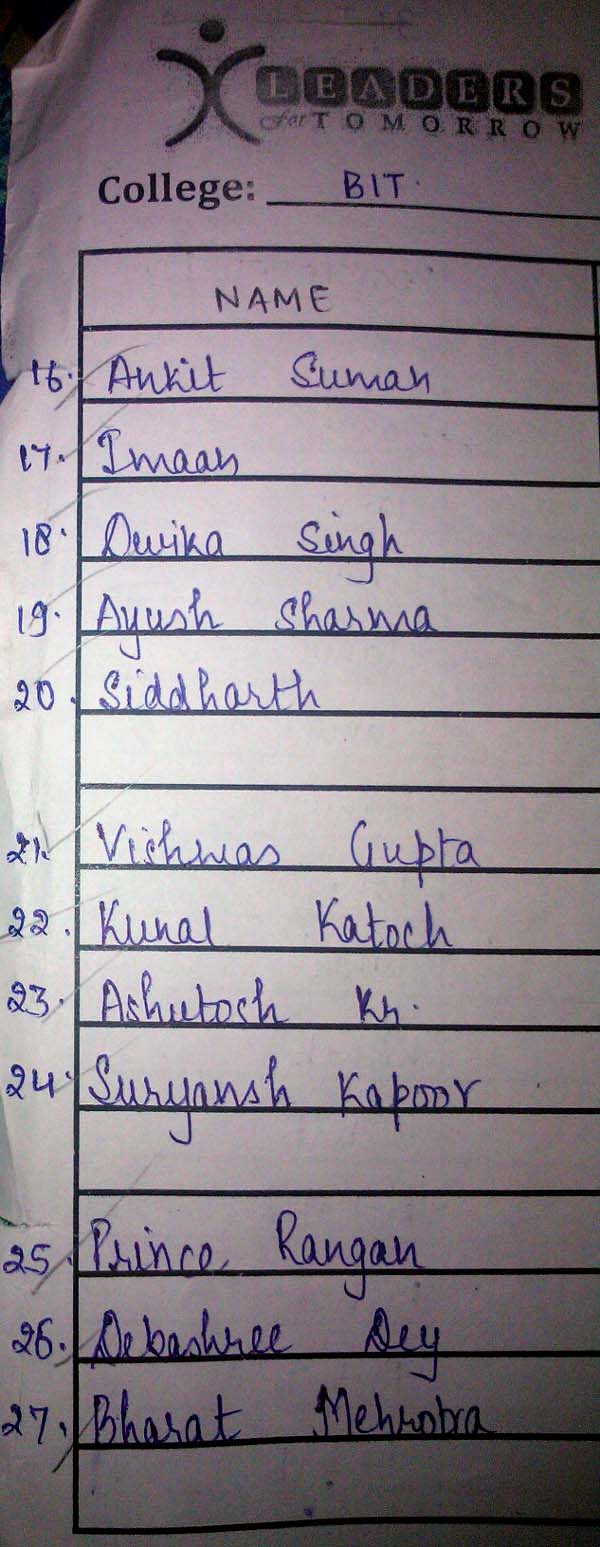 LEADERS
for TOMORROW
College: BIT.
NAME
16. Ankit Suman
17. Imaan
18. Dwika Singh
19. Ayush Sharma
20. Siddharth
21. Vishwas Gupta
22. Kunal Katoch
23. Ashutosh Kr.
24. Suryansh Kapoor
25. Prince Rangan
26. Debashree Dey
27. Bharat Mehrotra